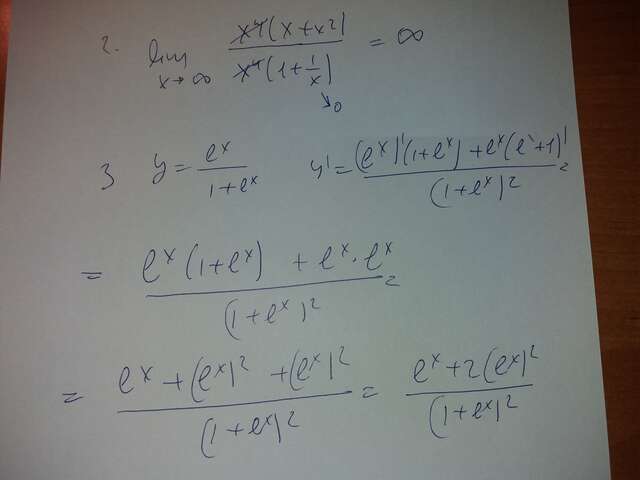 2. lim x→∞ x⁴(x+x²) / x⁴(1+1/x) = ∞
↘0
3 y = eˣ / 1+eˣ y' = (eˣ)'(1+eˣ)+eˣ(eˣ+1)' / (1+eˣ)² =
= eˣ(1+eˣ) + eˣ·eˣ / (1+eˣ)² =
= eˣ+(eˣ)²+(eˣ)² / (1+eˣ)² = eˣ+2(eˣ)² / (1+eˣ)²